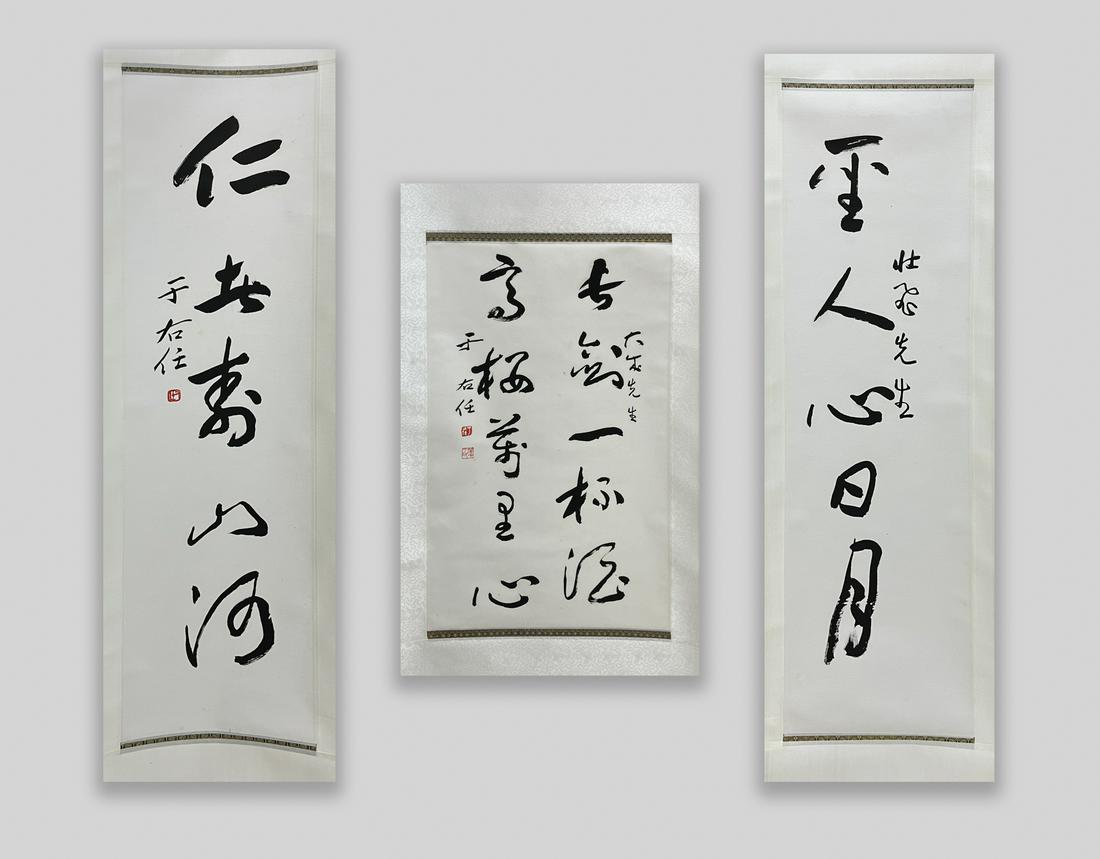 聖人心日月
壯飛先生
長劍一杯酒
先生
高樓萬里心
于右任
仁者壽山河
于右任